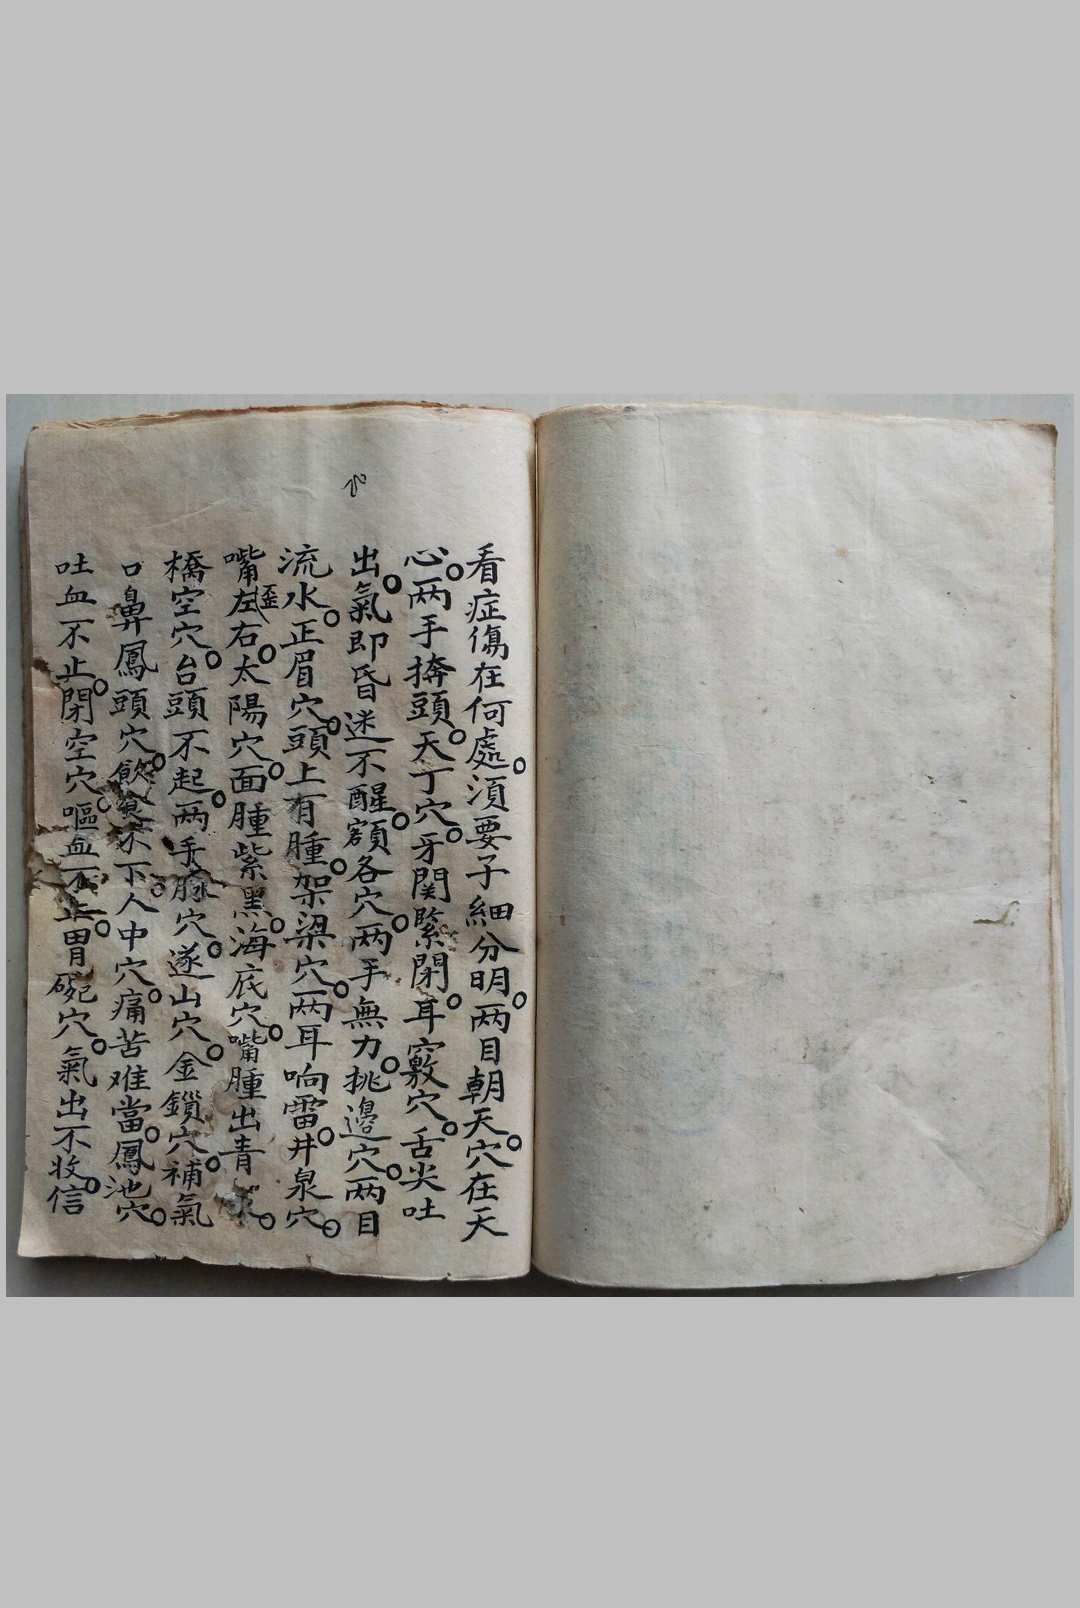 看症傷在何處。須要子細分明。两目朝天。穴在天
心。两手捹頭。天丁穴。牙関緊閉。耳竅穴。舌尖吐
出。氣即昏迷不醒。額各穴。两手無力。挑邊穴。两目
流水。正眉穴。頭上有腫。架梁穴。两耳响雷。井泉穴。
嘴歪左右。太陽穴。面腫紫黑。海底穴。嘴腫出青。
橋空穴。台頭不起。两手 穴。遂山穴。金鎖穴。補氣
口鼻鳳頭穴。飲食不下。人中穴。痛苦难當。鳳池穴。
吐血不止。閉空穴。嘔血不止。胃碗穴。氣出不收。信